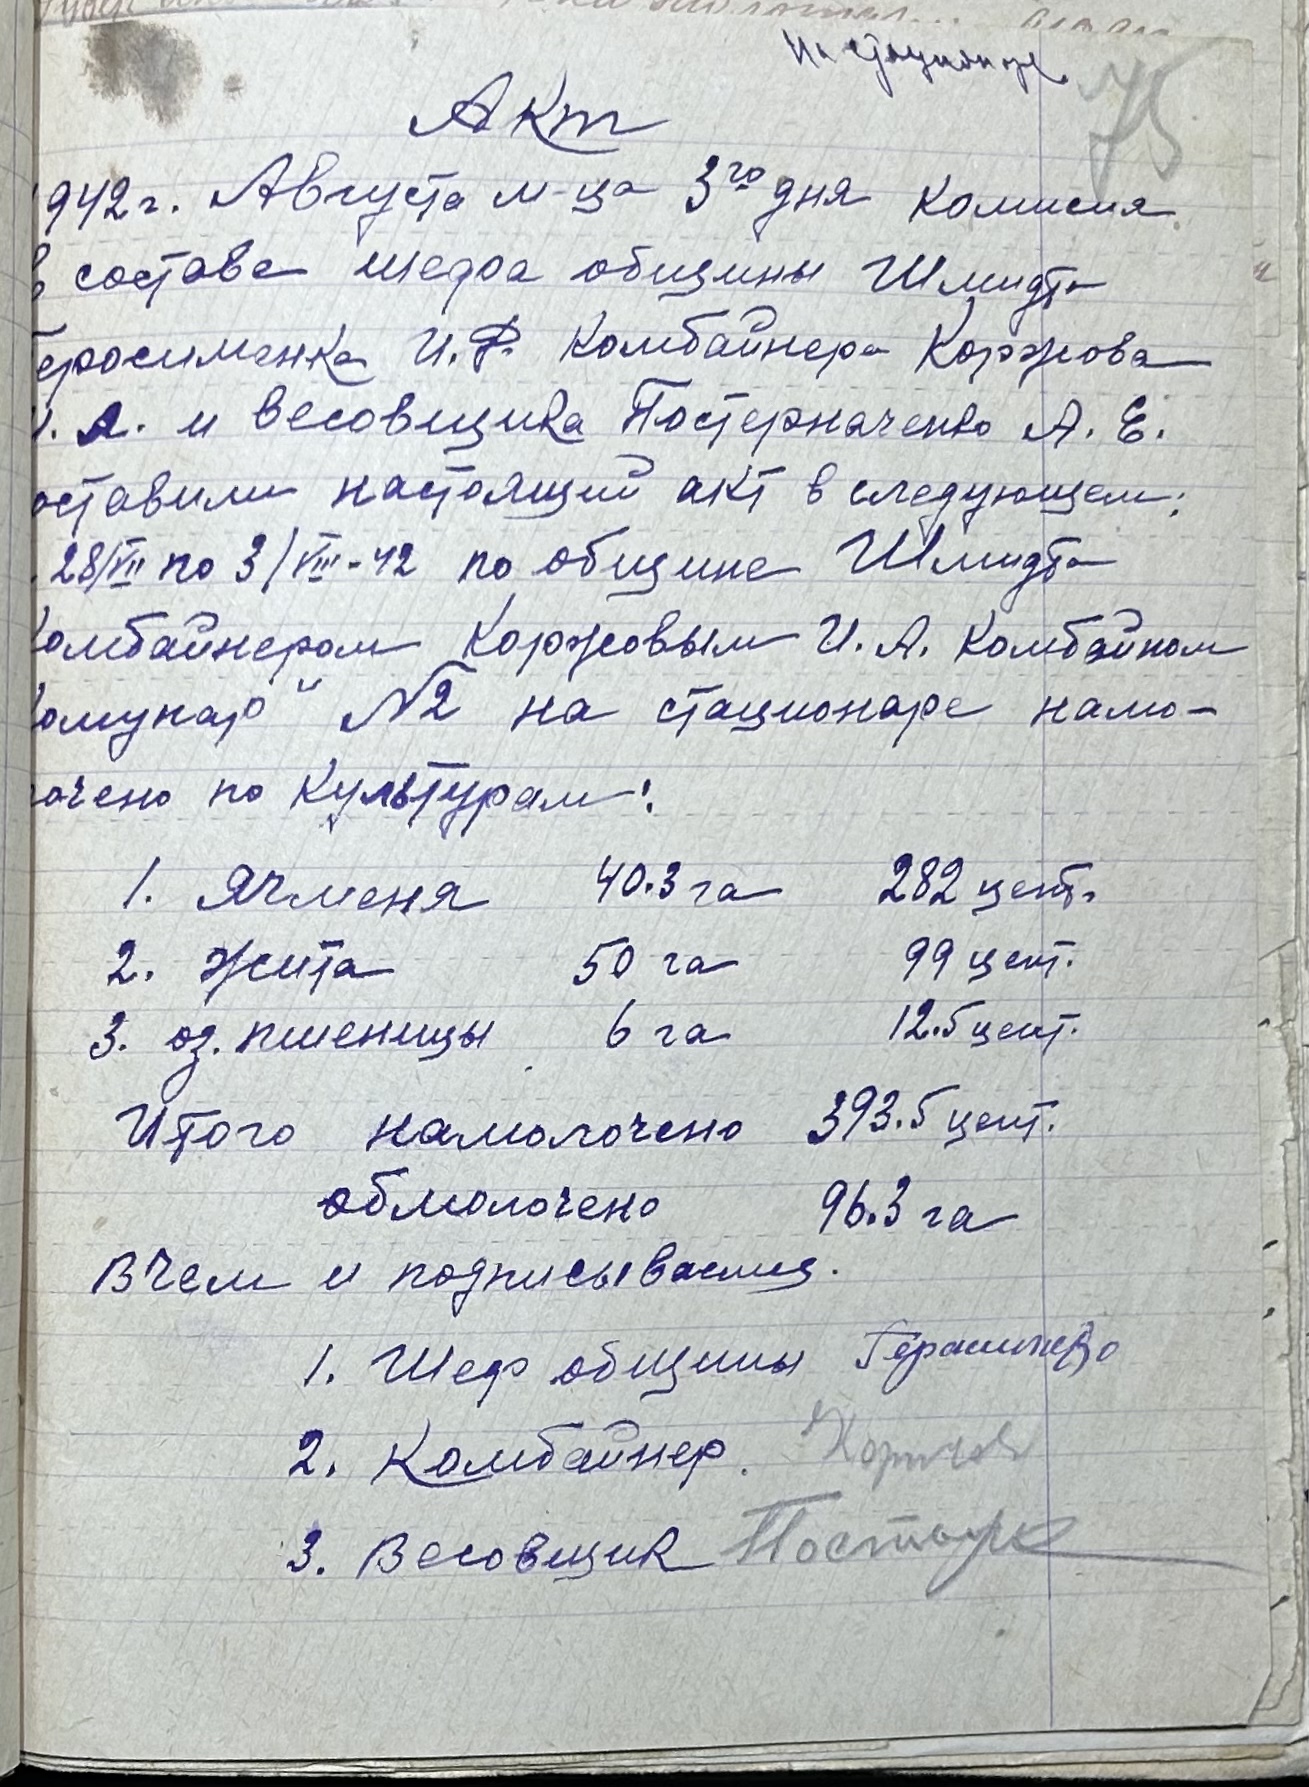 На стационаре
75
Акт
1942 г. Августа м-ца 3го дня комисия
в составе шефа общины Шмидта
Геросименка И.Ф. Комбайнера Коржова
И. А. и весовщика Постерначенко А. Е.
оставили настоящий акт в следующем:
28/VII по 3/VIII-42 по общине Шмидта
комбайнером Коржовым И.А. Комбайном
Комунар" №2 на стационаре намо-
лочено по культурам:
1. Ячменя 40.3 га 282 цент.
2. Жита 50 га 99 цент.
3. оз. пшеницы 6 га 12.5 цент.
Итого намолочено 393.5 цент.
обмолочено 96.3 га
В чем и подписываемся.
1. Шеф общины Герасименко
2. Комбайнер. Коржов
3. Весовщик Постерн